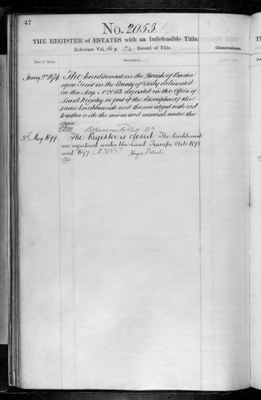 47
No. 2053.
THE REGISTER of ESTATES with an Indefeasible Title.
Reference Vol. p. Record of Title.
Observations.
Date of Entry.
Description.
1874 The hereditaments in the Parish of
upon Trent in the County of Derby delineated
on the Map No 2053 deposited in the Office of
Land Registry as part of the description of the
same hereditaments and thereon edged with red
together with the mines and minerals under the
same
5th May 1899. The Register is closed. The hereditaments
are registered under the Land Transfer Acts 1875
and 1897